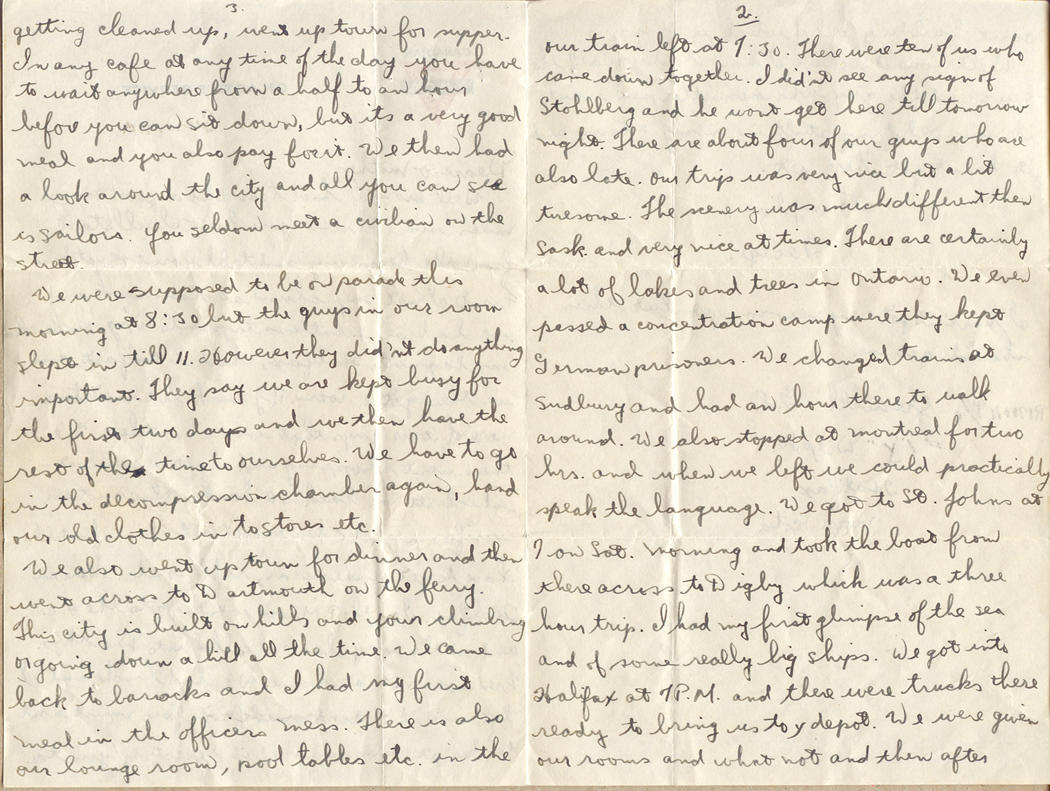 2.
our train left at 7:30. There were ten of us who
came down together. I did'nt see any sign of
Stohlberg and he wont get here till tomorrow
night. There are about four of our guys who are
also late. Our trip was very nice but a bit
tiresome. The scenery was much different then
Sask. and very nice at times. There are certainly
a lot of lakes and trees in Ontario. We even
passed a concentration camp were they kept
German prisoners. We changed trains at
Sudbury and had an hour there to walk
around. We also stopped at Montreal for two
hrs. and when we left we could practically
speak the language. We got to St. Johns at
7 on Sat. morning and took the boat from
there across to Digby which was a three
hour trip. I had my first glimpse of the sea
and of some really big ships. We got into
Halifax at 7 P.M. and there were trucks there
ready to bring us to y depot. We were given
our rooms and what not and then after
3.
getting cleaned up, went up town for supper.
In any cafe at any time of the day you have
to wait anywhere from a half to an hour
before you can sit down, but its a very good
meal and you also pay for it. We then had
a look around the city and all you can see
is sailors. You seldom meet a civilian on the
street.
We were supposed to be on parade this
morning at 8:30 but the guys in our room
slept in till 11. However they did'nt do anything
important. They say we are kept busy for
the first two days and we then have the
rest of the time to ourselves. We have to go
in the decompression chamber again, hand
our old clothes in to stores etc.
We also went up town for dinner and then
went across to Dartmouth on the ferry.
This city is built on hills and your climbing
or going down a hill all the time. We came
back to barracks and I had my first
meal in the officers mess. There is also
our lounge room, pool tables etc. in the